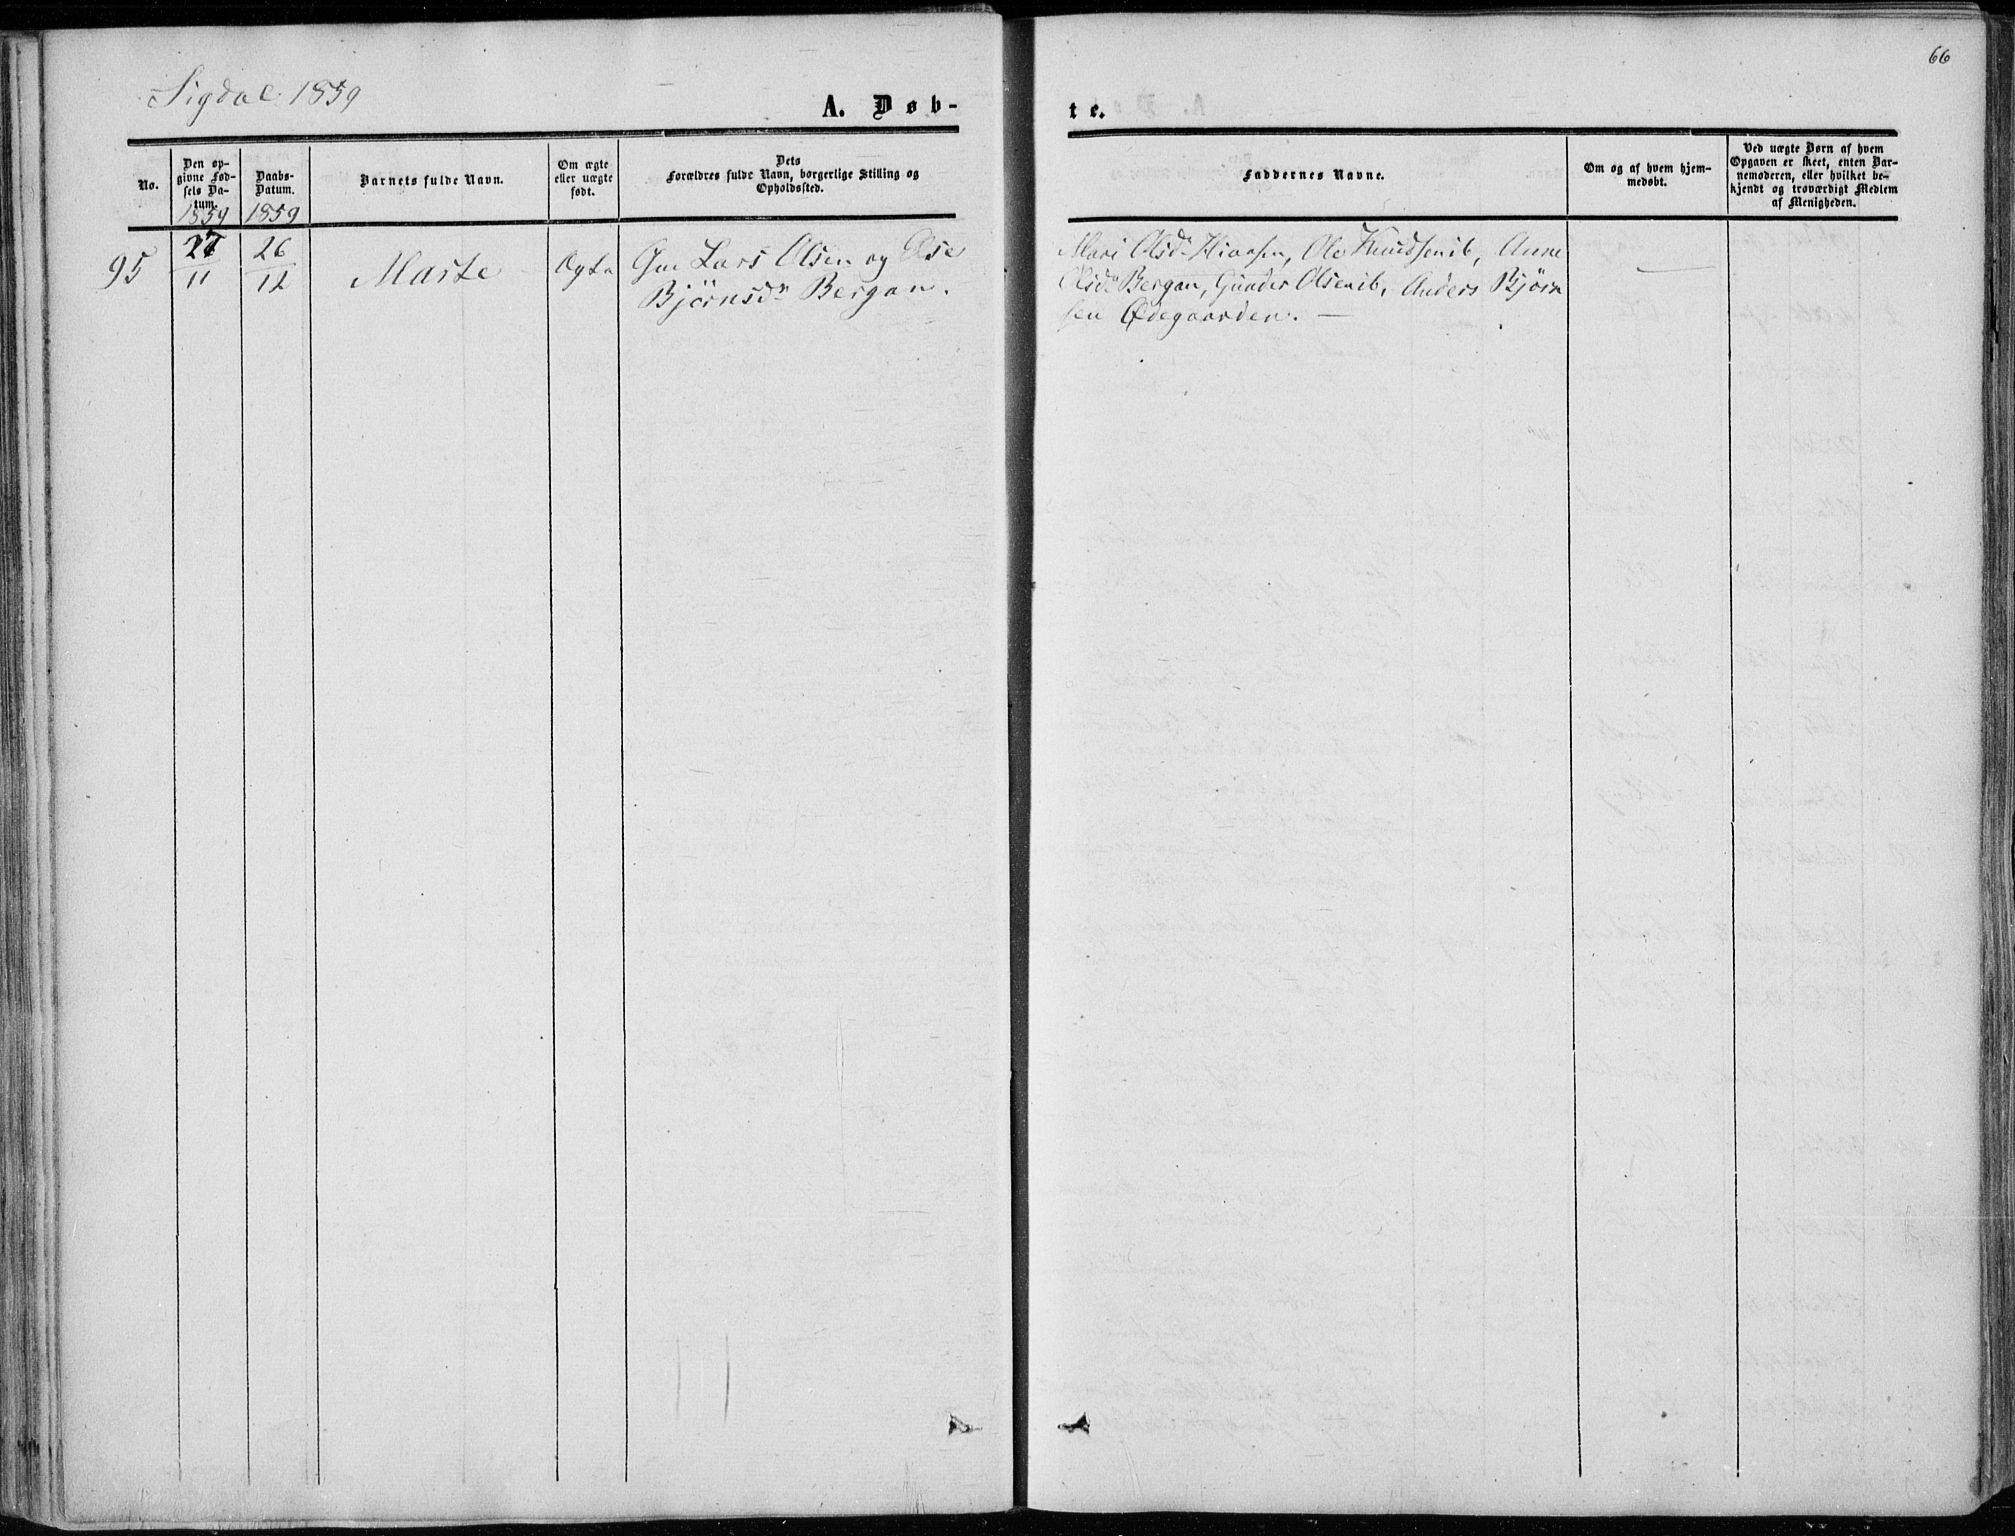 66
Sigdal 1859
A. Døb-
te.
No.
Den op-
givne Fød-
sels Da-
tum.
1859
Daabs-
Datum.
1859
Barnets fulde Navn.
Om ægte
eller uægte
født.
Dets
Forældres fulde Navn, borgerlige Stilling og
Opholdssted.
Faddernes Navne.
Om og af hvem hjem-
medøbt.
Ved uægte Børn af hvem
Opgaven er skeet, enten Bar-
nemoderen, eller hvilket be-
kjendt og troværdigt Medlem
af Menigheden.
95
27/11
26/12
Marte
Ægte
Gm Lars Olsen og Else
Bjørnsdr Bergan.
Mari Olsdr Hiaasen, Ole Knudsen ib, Anne
Olsdr Bergan, Gunder Olsen ib, Anders Bjørn
sen Ødegaarden. —